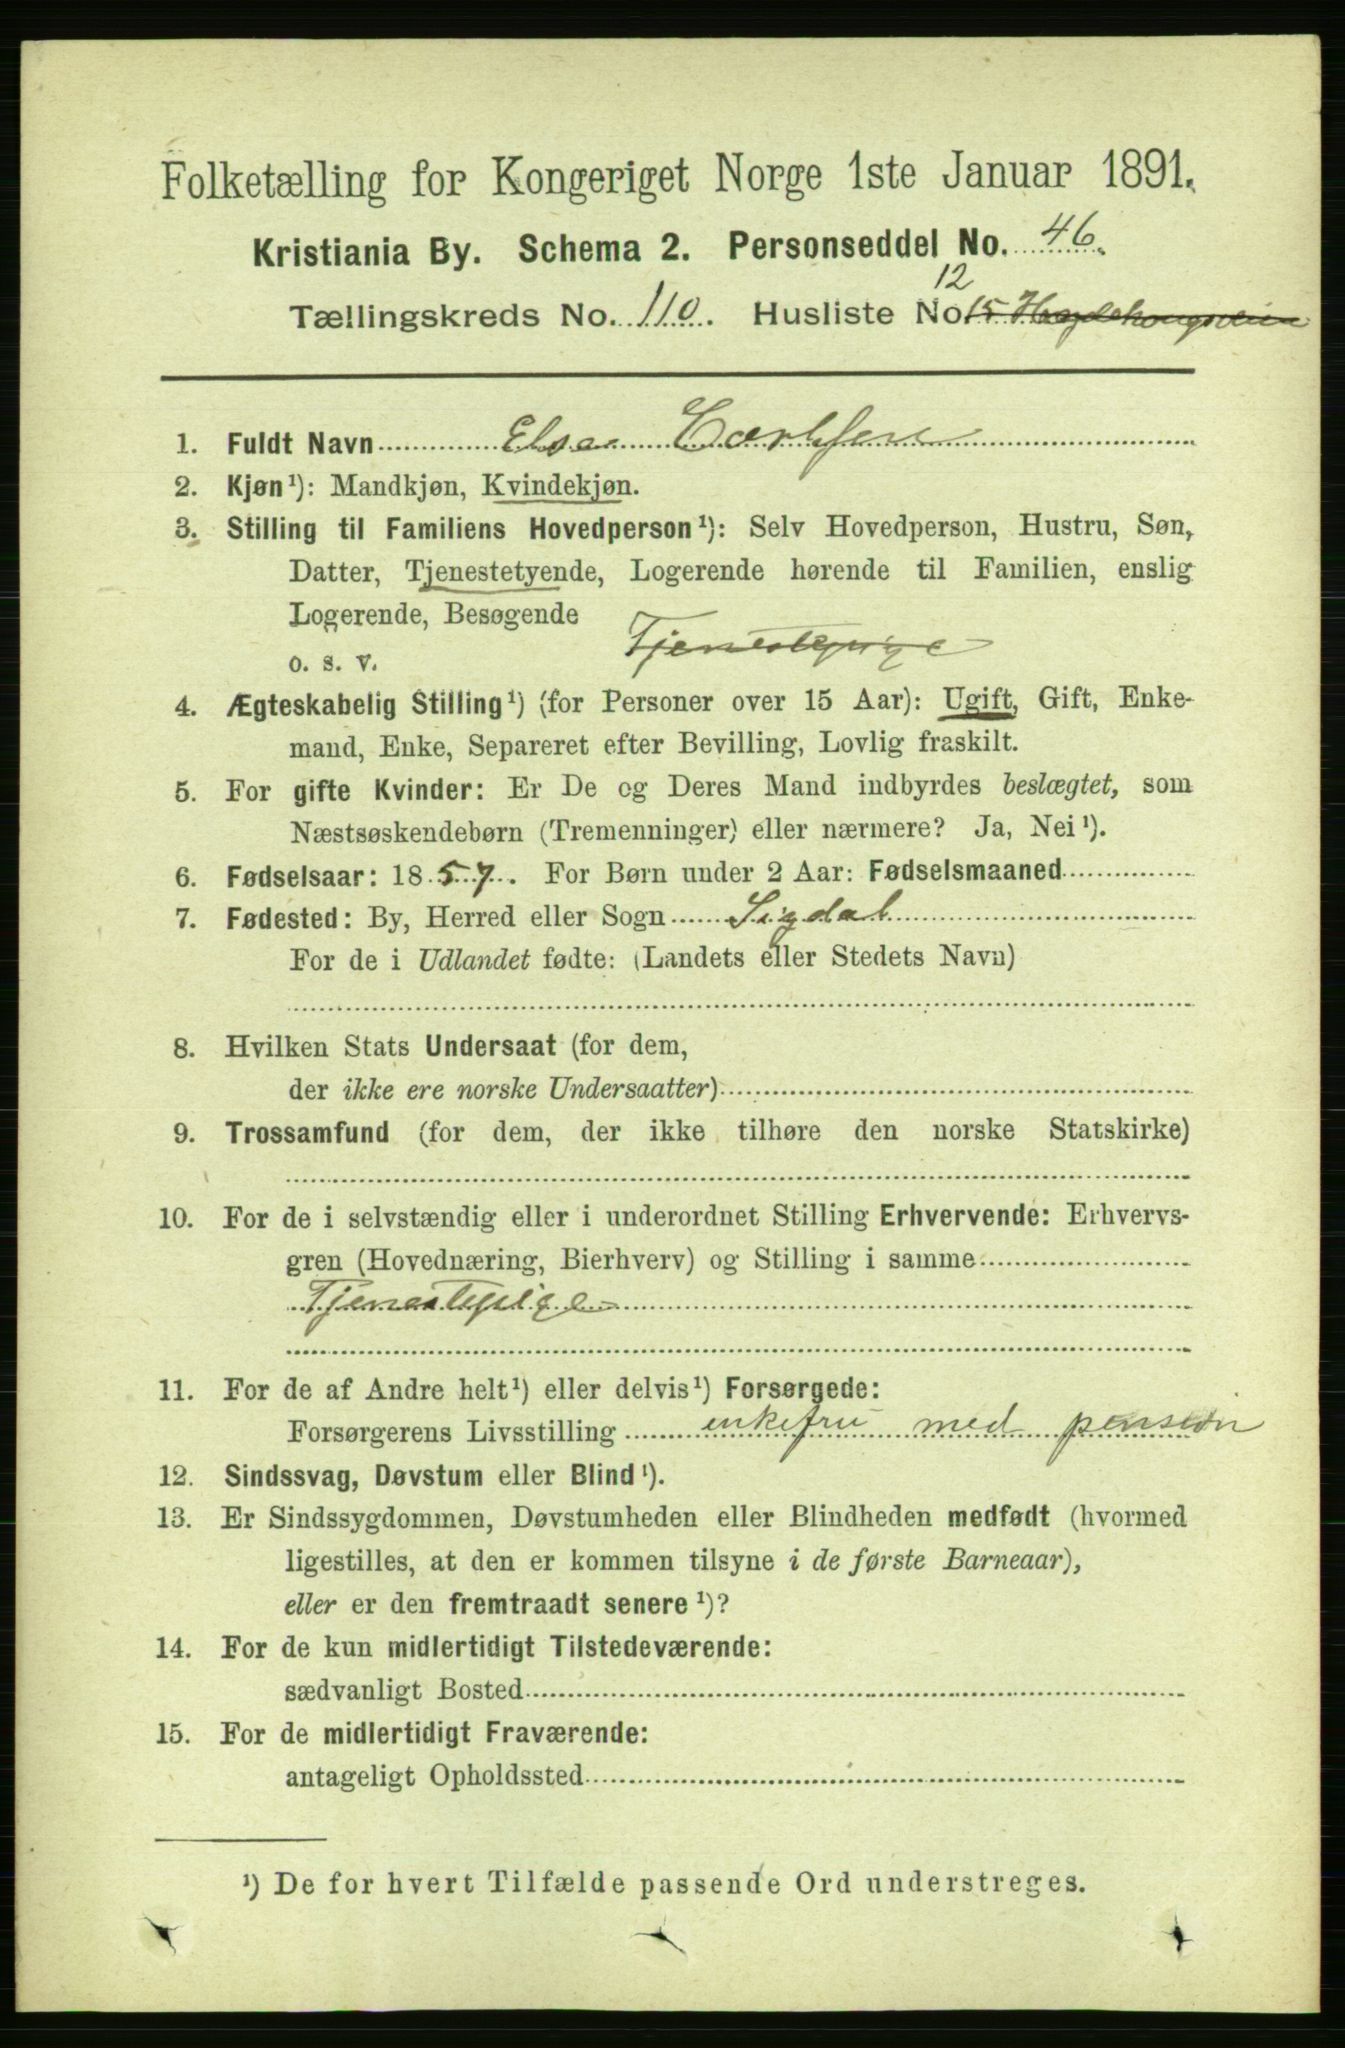 Folketælling for Kongeriget Norge 1ste Januar 1891.
Kristiania By. Schema 2. Personseddel No. 46.
12
Tællingskreds No. 110. Husliste No. 15
1. Fuldt Navn Elsa Carlsen
2. Kjøn¹): Mandkjøn, Kvindekjøn.
3. Stilling til Familiens Hovedperson¹): Selv Hovedperson, Hustru, Søn,
Datter, Tjenestetyende, Logerende hørende til Familien, enslig
Logerende, Besøgende
o. s. v. Tjenestepige
4. Ægteskabelig Stilling¹) (for Personer over 15 Aar): Ugift, Gift, Enke-
mand, Enke, Separeret efter Bevilling, Lovlig fraskilt.
5. For gifte Kvinder: Er De og Deres Mand indbyrdes beslægtet, som
Næstsøskendebørn (Tremenninger) eller nærmere? Ja, Nei¹).
6. Fødselsaar: 1857. For Børn under 2 Aar: Fødselsmaaned
7. Fødested: By, Herred eller Sogn Sigdal
For de i Udlandet fødte: (Landets eller Stedets Navn)
8. Hvilken Stats Undersaat (for dem,
der ikke ere norske Undersaatter)
9. Trossamfund (for dem, der ikke tilhøre den norske Statskirke)
10. For de i selvstændig eller i underordnet Stilling Erhvervende: Erhvervs-
gren (Hovednæring, Bierhverv) og Stilling i samme
Tjenestepige
11. For de af Andre helt¹) eller delvis¹) Forsørgede:
Forsørgerens Livsstilling enkefru med pension
12. Sindssvag, Døvstum eller Blind¹).
13. Er Sindssygdommen, Døvstumheden eller Blindheden medfødt (hvormed
ligestilles, at den er kommen tilsyne i de første Barneaar),
eller er den fremtraadt senere¹)?
14. For de kun midlertidigt Tilstedeværende:
sædvanligt Bosted
15. For de midlertidigt Fraværende:
antageligt Opholdssted
¹) De for hvert Tilfælde passende Ord understreges.